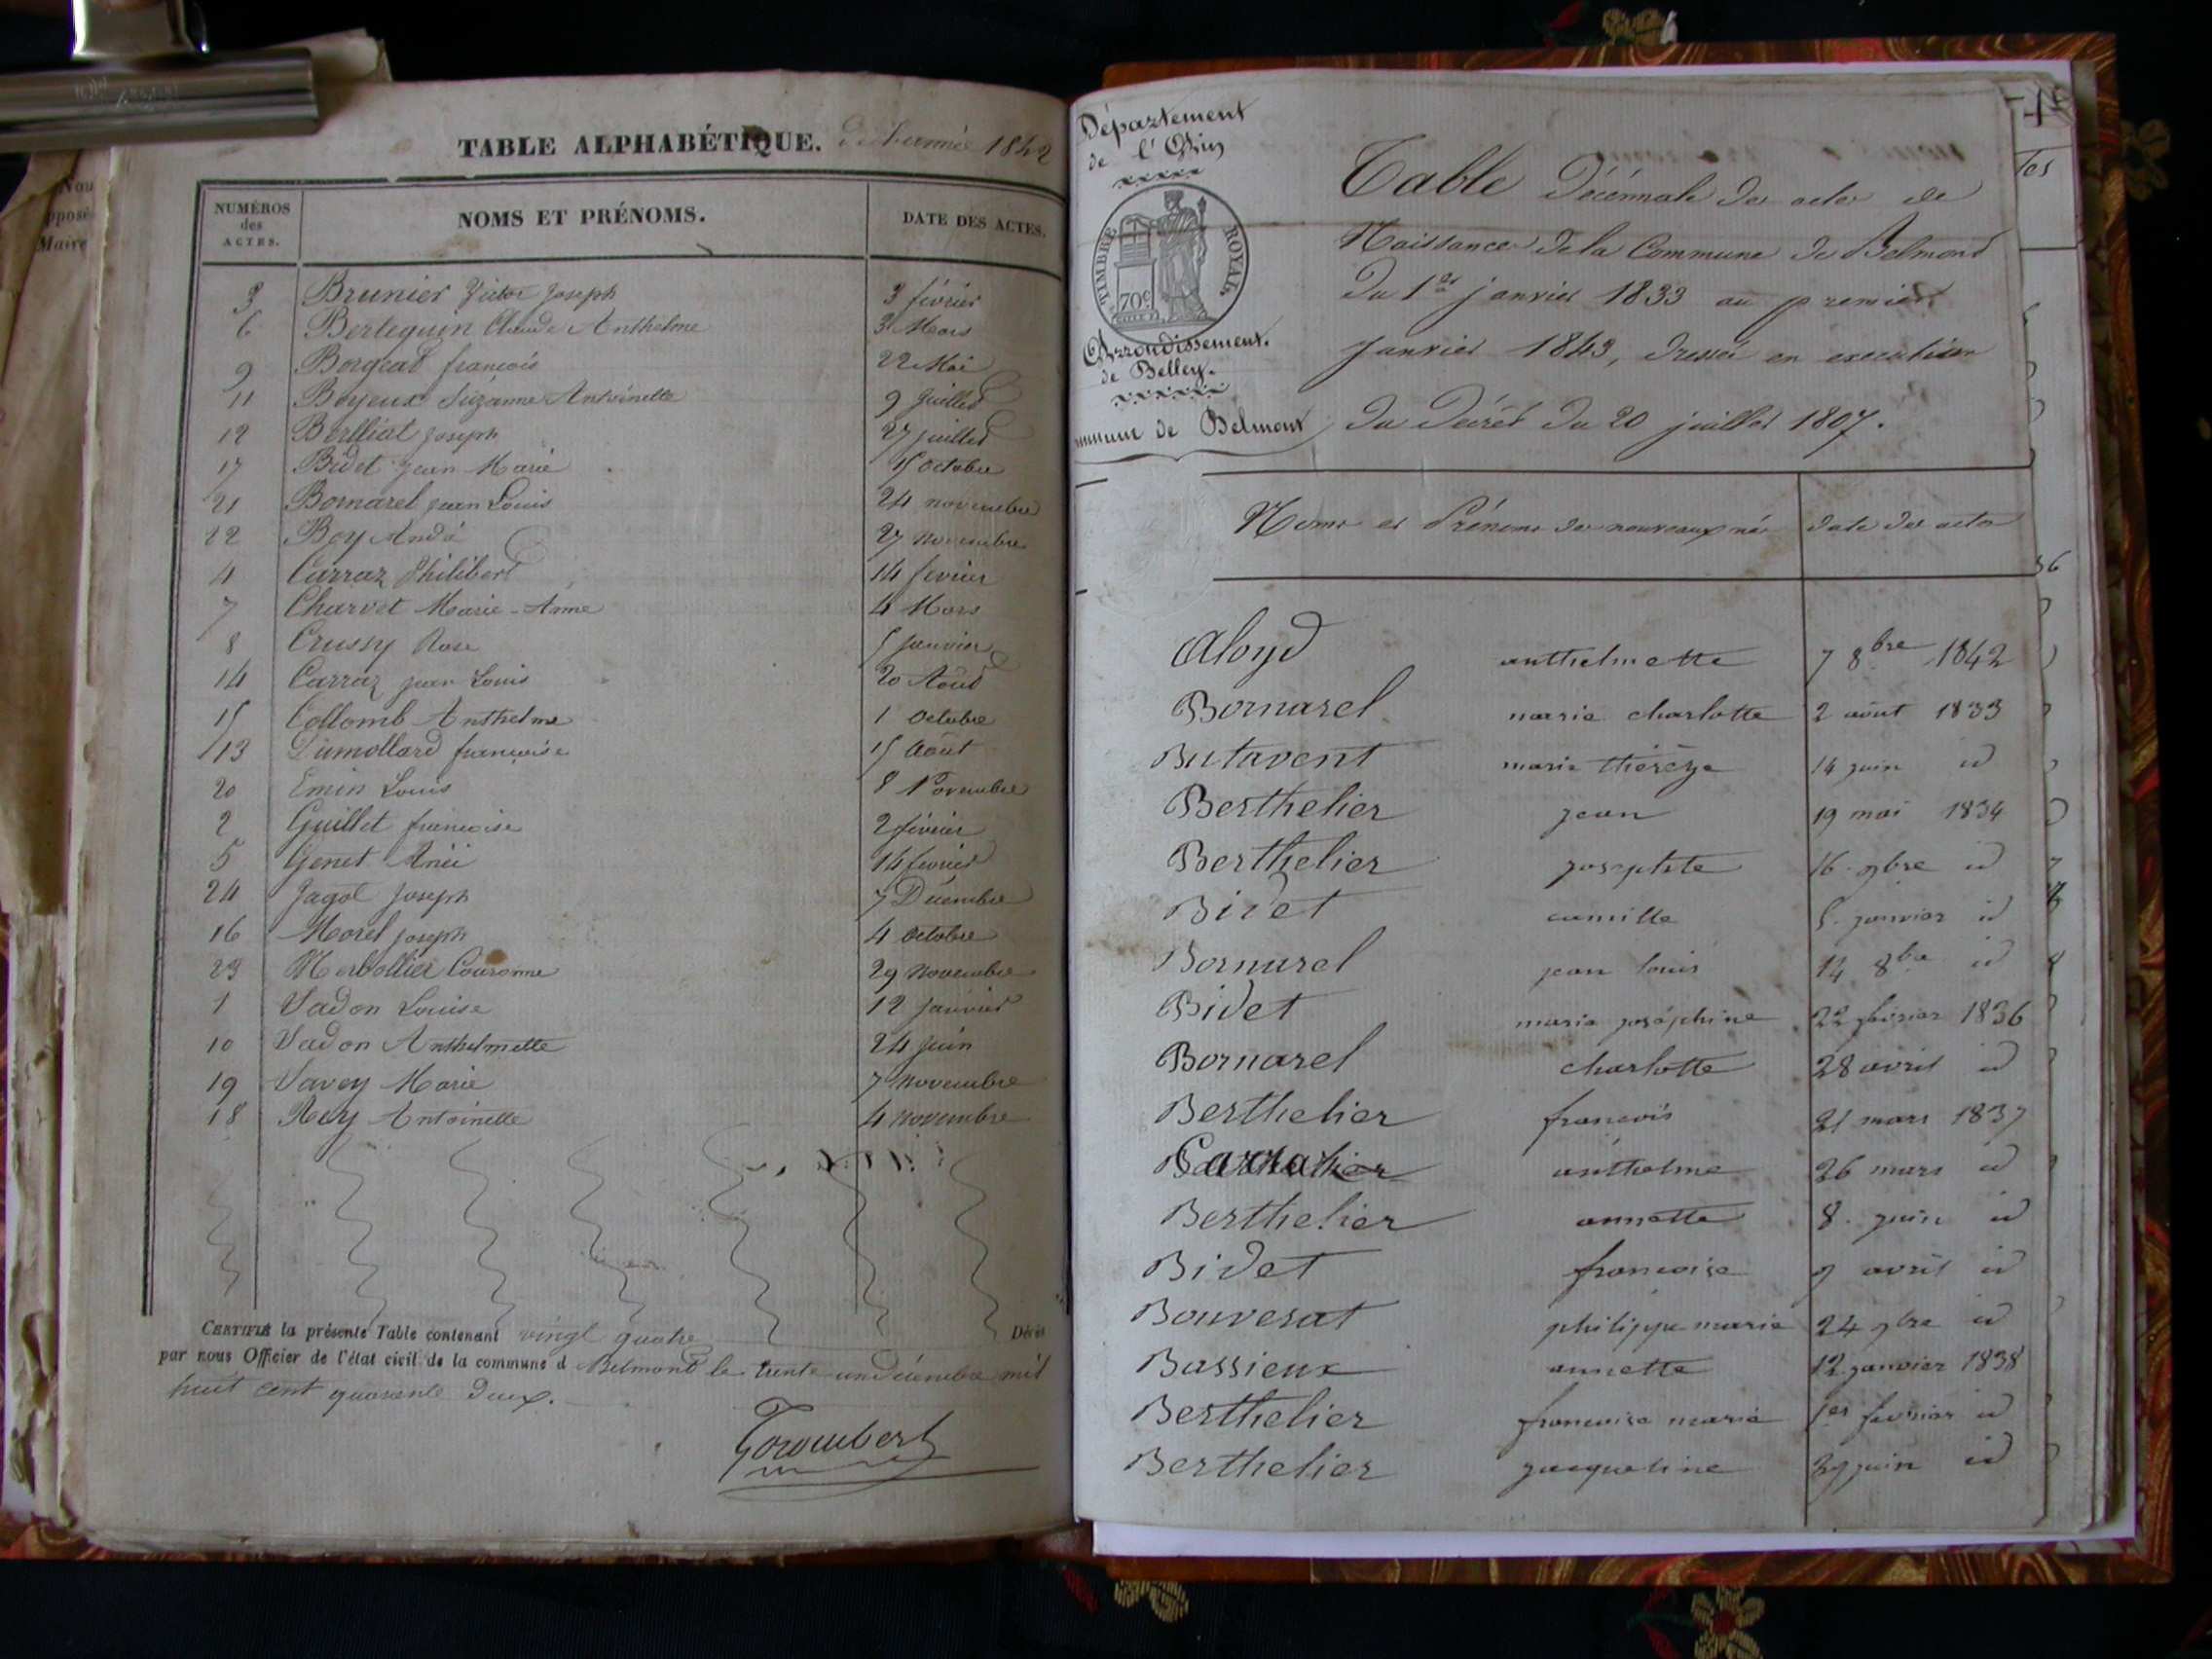 Nou
pposé
Maire
TABLE ALPHABÉTIQUE. de l'année 1842
NUMÉROS des ACTES. NOMS ET PRÉNOMS. DATE DES ACTES.
3 Brunier Joseph 3 février
6 Bertequin Claude Anthelme 3 Mars
9 Borgeat françois 22 Mai
11 Boyeux Suzanne Antoinette 9 Juillet
12 Berlliat Joseph 27 juillet
17 Bidet Jean Marie 15 Octobre
21 Bornarel jean Louis 24 novembre
22 Boy André 27 novembre
4 Carraz Philibert 14 fevrier
7 Charvet Marie-Anne 4 Mars
8 Crussy Rose 5 janvier
14 Carraz jean Louis 20 Août
15 Collomb Anthelme 1 Octobre
13 Dumollard françoise 15 Août
20 Emin Louis 8 Novembre
2 Guillet françoise 2 février
5 Genet 14 fevrier
24 Jagot Joseph 7 Décembre
16 Morel joseph 4 Octobre
23 Merbollier Couronne 29 novembre
1 Vadon Louise 12 janvier
10 Vadon Anthelmette 24 juin
19 Vavey Marie 7 novembre
18 Rey Antoinette 4 novembre
CERTIFIÉ la présente Table contenant vingt quatre Décès
par nous Officier de l'état civil de la commune d Belmont le trente un décembre mil
huit cent quarante deux.
Trombert
Département
de l'Ain
TIMBRE ROYAL
70c
Arrondissement.
de Belley.
mmune de Belmont
Table Décennale des actes de
Naissances de la Commune de Belmont
du 1er janvier 1833 au premier
Janvier 1843, dressée en execution
du Décret du 20 juillet 1807.
Noms et Prénoms des nouveaux nés date des actes
Aloyd anthelmette 7 8bre 1842
Bornarel marie charlotte 2 août 1833
Butavent marie thérèze 14 juin id
Berthelier jean 19 mai 1834
Berthelier josephte 16 9bre id
Bidet camille 5 janvier id
Bornarel jean louis 14 8bre id
Bidet marie joséphine 22 février 1836
Bornarel charlotte 28 avril id
Berthelier francois 21 mars 1837
Carraz anthelme 26 mars id
Berthelier annette 8 juin id
Bidet francoise 9 avril id
Bouverat philippe marie 24 9bre id
Bassieux annette 12 janvier 1838
Berthelier francoise marie 1er fevrier id
Berthelier jacqueline 29 juin id